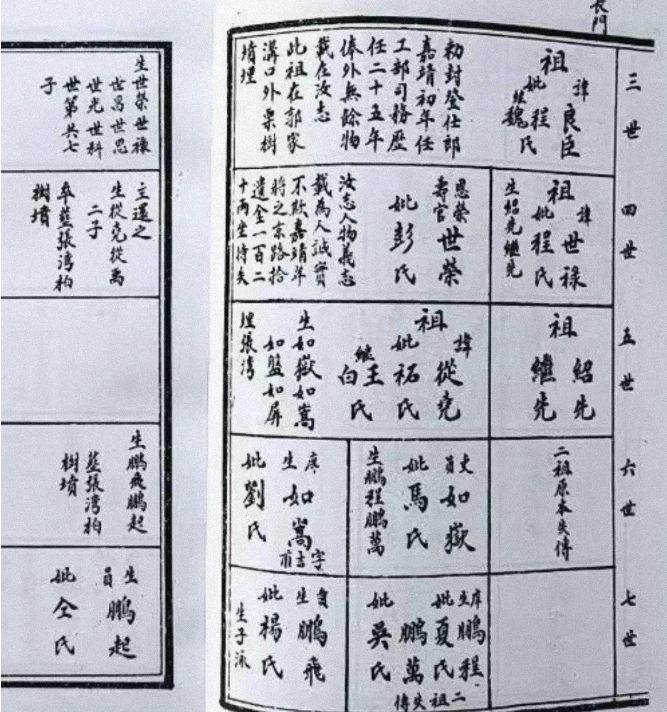 長門
三世
祖
諱良臣
妣程氏
繼魏氏
勅封登仕郎
嘉靖初年任
工部司務歷
任二十五年
俸外無餘物
載在汝志
此祖在郭家
溝口外栗樹
墳埋
生世榮世祿
世昌世恩
世光世科
世第共七
子
四世
祖
諱世祿
妣程氏
生紹先繼先
恩榮
壽官世榮
妣彭氏
汝志人物義志
載為人誠實
不欺嘉靖年
將之京路拾
遺金一百二
十兩坐待失
主還之
生從堯從禹
二子
卒葬張灣柏
樹墳
五世
祖
紹先
繼先
祖
諱從堯
妣祏氏
繼王氏
白氏
生如嶽如嵩
如盤如屏
埋張灣
六世
二祖原本失傳
吏員如嶽
妣馬氏
生鵬程鵬萬
庠生如嵩字甫言
妣劉氏
生鵬飛鵬起
葬張灣柏
樹墳
七世
庠生鵬程
妣夏氏
鵬萬
妣吳氏
二祖失傳
貢生鵬飛
妣楊氏
生子泳
生員鵬起
妣仝氏